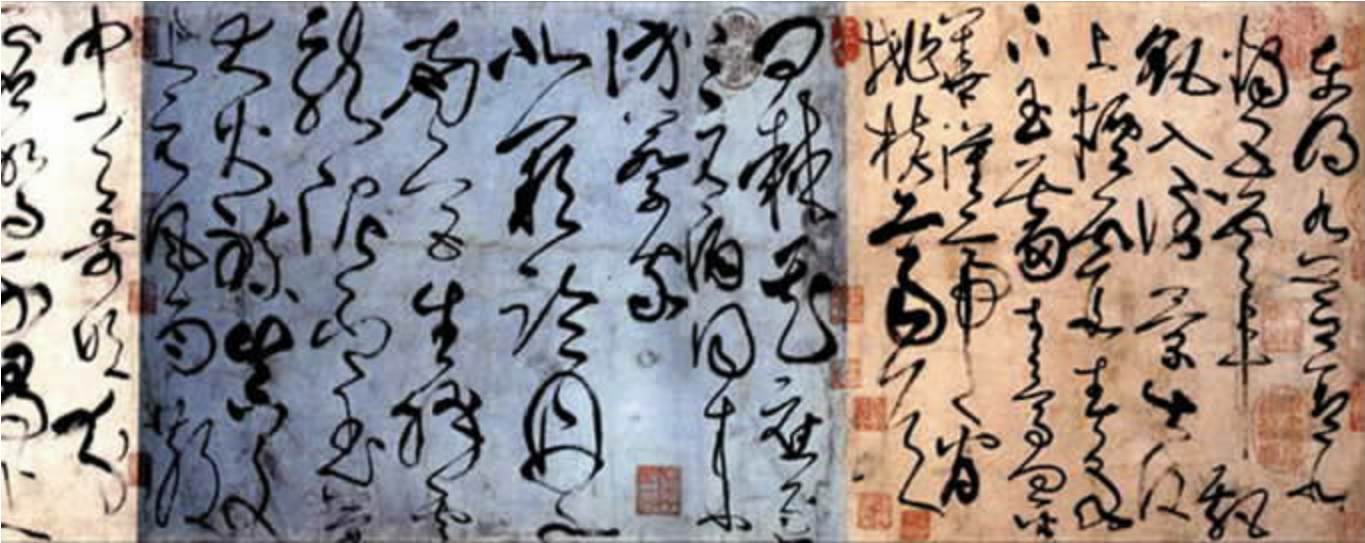 東明九芝蓋北
燭五雲車飄
飖入倒景出沒
上煙霞春泉
下玉霤青鳥向金
華漢帝看
桃核齊侯
問棘花應逐
上元酒同來
訪蔡家
北闕臨丹水
南宮生絳雲
龍泥印玉簡
大火煉真文
上元風雨散
中天歌吹